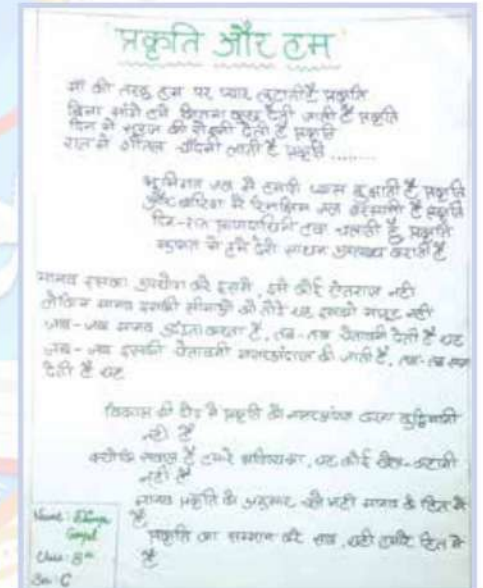 प्रकृति और हम
माँ की तरह हम पर प्यार लुटाती है प्रकृति
बिना मांगे हमें कितना कुछ देती जाती है प्रकृति
दिन में सूरज की रोशनी देती है प्रकृति
रात में शीतल चाँदनी लाती है प्रकृति ........
भूमिगत जल से हमारी प्यास बुझाती है प्रकृति
और बारिश में रिमझिम जल बरसाती है प्रकृति
दिन-रात प्राणदायिनी हवा चलाती है प्रकृति
मुफ्त में हमें ढेरों साधन उपलब्ध कराती है
मानव इसका उपयोग करे इससे, इसे कोई ऐतराज नहीं
लेकिन मानव इसकी सीमाओं को तोड़े यह इसको मंजूर नहीं
जब-जब मानव उदंडता करता है, तब-तब चेतावनी देती है यह
जब-जब इसकी चेतावनी नजरअंदाज की जाती है, तब-तब सजा
देती है यह
विकास की दौड़ में प्रकृति को नजरअंदाज करना बुद्धिमानी
नहीं है
क्योंकि सवाल है हमारे भविष्य का, यह कोई खेल-कहानी
नहीं है
मानव प्रकृति के अनुसार चले यही मानव के हित में
है
प्रकृति का सम्मान करें सब, यही हमारे हित में
है
Name:
Goyal
Class: 8th
Sec: C